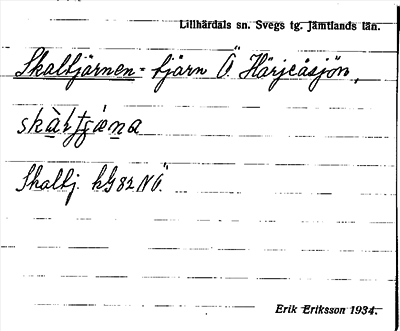 Lillhärdals sn. Svegs tg. Jämtlands län.
Skaltjärnen - tjärn Ö Härjeåsjön,
Skaltj. kG82NÖ.
Erik Eriksson 1934.